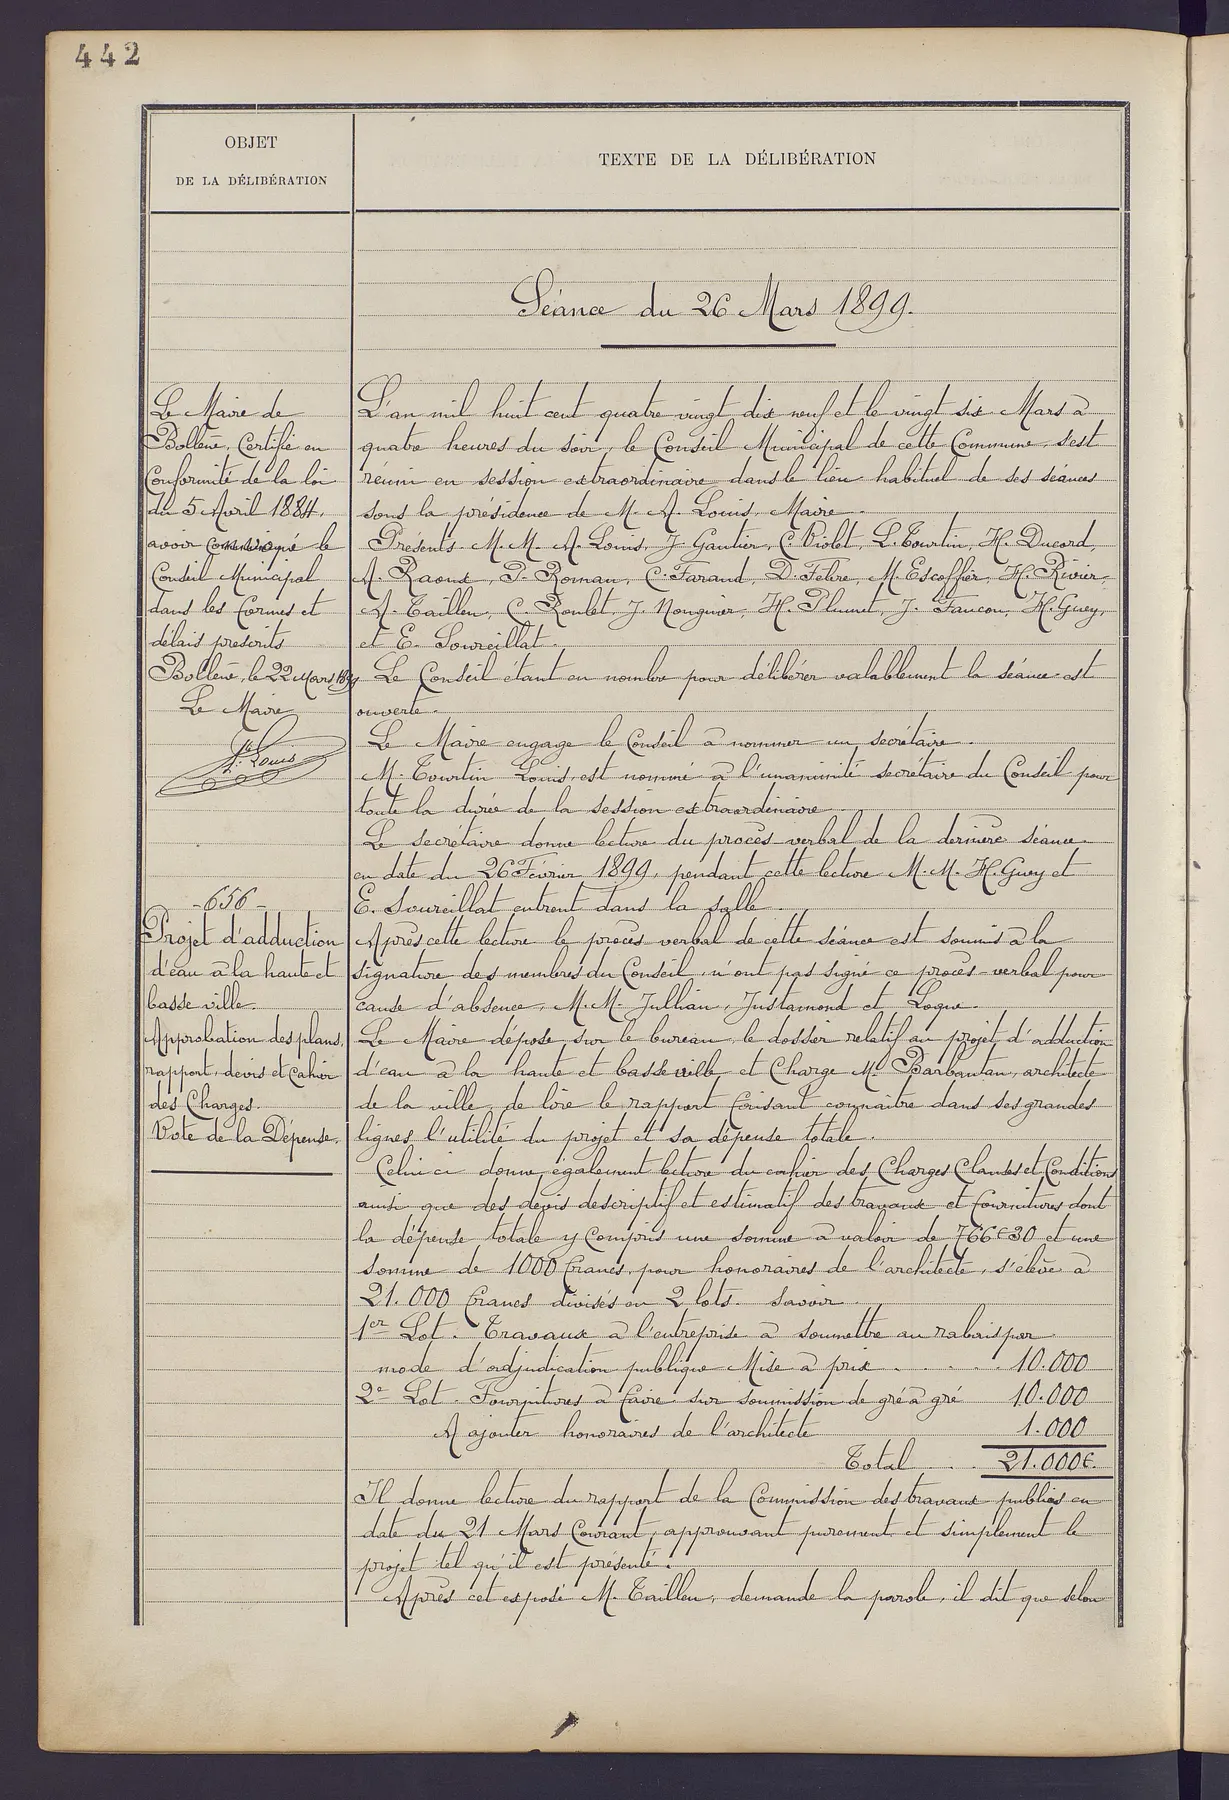 442
OBJET
DE LA DÉLIBÉRATION
TEXTE DE LA DÉLIBÉRATION
Séance du 26 Mars 1899.
Le Maire de
Bollène, Certifie en
Conformité de la loi
du 5 Avril 1884,
avoir convoqué le
Conseil Municipal
dans les formes et
délais prescrits
Bollène, le 22 Mars 1899
Le Maire
A. Louis
- 656 -
Projet d'adduction
d'eau à la haute et
basse ville.
Approbation des plans,
rapport, devis et Cahier
des Charges.
Vote de la Dépense.
L'an mil huit cent quatre vingt dix neuf et le vingt six Mars à
quatre heures du soir, le Conseil Municipal de cette Commune, s'est
réuni en session extraordinaire dans le lieu habituel de ses séances
sous la présidence de M. A. Louis, Maire.
Présents. M.M. A. Louis, J. Gautier, C. Violet, L. Tourtin, H. Ducord,
A. Raoux, P. Roman, C. Farand, D. Febre, M. Escoffier, H. Rivier,
A. Taillen, C. Roulet, J. Nouguier, H. Plumet, J. Faucon, H. Guey,
et E. Soureillat.
Le Conseil étant en nombre pour délibérer valablement la séance est
ouverte.
Le Maire engage le Conseil à nommer un secrétaire.
M. Tourtin Louis, est nommé à l'unanimité secrétaire du Conseil pour
toute la durée de la session extraordinaire.
Le secrétaire donne lecture du procès-verbal de la dernière séance
en date du 26 Février 1899, pendant cette lecture M.M. H. Guey et
E. Soureillat entrent dans la salle.
Après cette lecture le procès verbal de cette séance est soumis à la
signature des membres du Conseil, n'ont pas signé ce procès-verbal pour
cause d'absence, M.M. Jullian, Justamond et Logne.
Le Maire dépose sur le bureau, le dossier relatif au projet d'adduction
d'eau à la haute et basse ville et Charge M. Barbantan, architecte
de la ville, de lire le rapport faisant connaître dans ses grandes
lignes l'utilité du projet et sa dépense totale.
Celui ci donne également lecture du cahier des Charges Clauses et Conditions
ainsi que des devis descriptif et estimatif des travaux et fournitures dont
la dépense totale y compris une somme à valoir de 766f30 et une
somme de 1000 francs pour honoraires de l'architecte, s'élève à
21.000 francs divisés en 2 lots. savoir
1er Lot. Travaux à l'entreprise à soumettre au rabais par
mode d'adjudication publique Mise à prix . . . . 10.000
2e Lot. Fournitures à faire sur soumission de gré à gré 10.000
A ajouter honoraires de l'architecte 1.000
Total . . . 21.000f.
Il donne lecture du rapport de la Commission des travaux publics en
date du 21 Mars Courant, approuvant purement et simplement le
projet tel qu'il est présenté.
Après cet exposé M. Taillen, demande la parole, il dit que selon